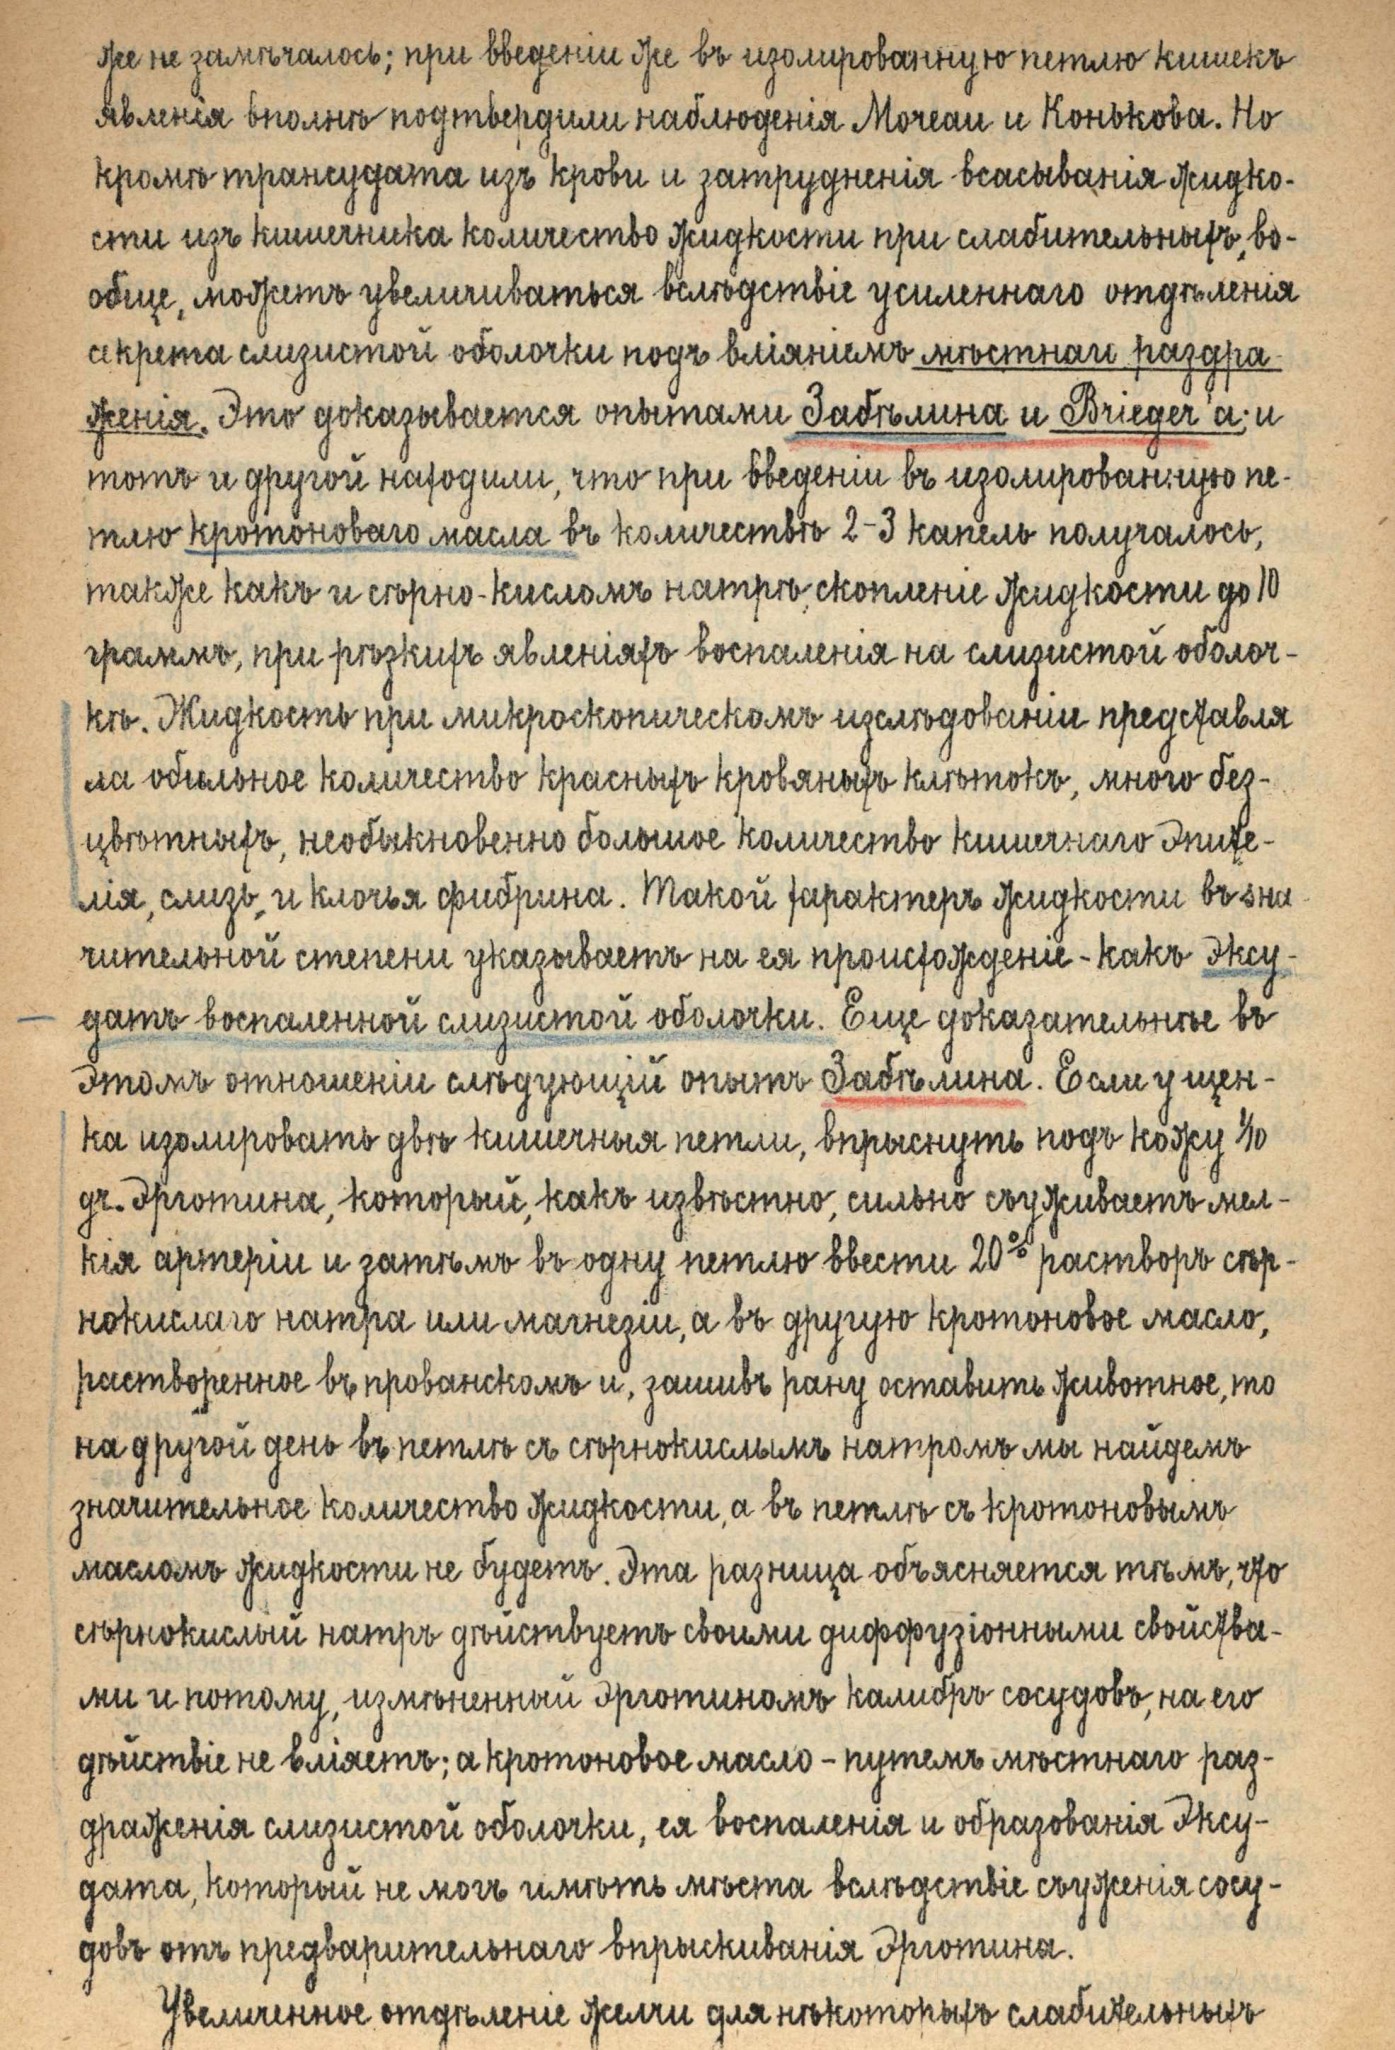 же не замѣчалось; при введеніи же въ изолированную петлю кишекъ
явленія вполнѣ подтвердили наблюденія Мочеаи и Конькова. Но
кромѣ трансудата изъ крови и затрудненія всасыванія жидко-
сти изъ кишечника количество жидкости при слабительныхъ, во-
обще, можетъ увеличиваться вслѣдствіе усиленнаго отдѣленія
секрета слизистой оболочки подъ вліяніемъ мѣстнаго раздра-
женія. Это доказывается опытами Забѣлина и Brieger'а; и
тотъ и другой находили, что при введеніи въ изолированную пе-
тлю кротоноваго масла въ количествѣ 2-3 капель получалось,
также какъ и сѣрно-кисломъ натрѣ, скопленіе жидкости до 10
граммъ, при рѣзкихъ явленіяхъ воспаленія на слизистой оболоч-
кѣ. Жидкость при микроскопическомъ изслѣдованіи представля
ла обильное количество красныхъ кровяныхъ клѣтокъ, много без-
цвѣтныхъ, необыкновенно большое количество кишечнаго эпите-
лія, слизь, и клочья фибрина. Такой характеръ жидкости въ зна-
чительной степени указываетъ на ея происхожденіе - какъ эксу-
датъ воспаленной слизистой оболочки. Еще доказательнѣе въ
этомъ отношеніи слѣдующій опытъ Забѣлина. Если у щен-
ка изолировать двѣ кишечныя петли, впрыснуть подъ кожу 1/10
гр. эрготина, который, какъ извѣстно, сильно съуживаетъ мел-
кія артеріи и затѣмъ въ одну петлю ввести 20% растворъ сѣр-
нокислаго натра или магнезіи, а въ другую кротоновое масло,
растворенное въ прованскомъ и, зашивъ рану оставить животное, то
на другой день въ петлѣ съ сѣрнокислымъ натромъ мы найдемъ
значительное количество жидкости, а въ петлѣ съ кротоновымъ
масломъ жидкости не будетъ. Эта разница объясняется тѣмъ, что
сѣрнокислый натръ дѣйствуетъ своими диффузіонными свойства-
ми и потому, измѣненный эрготиномъ калибръ сосудовъ, на его
дѣйствіе не вліяетъ; а кротоновое масло - путемъ мѣстнаго раз-
драженія слизистой оболочки, ея воспаленія и образованія эксу-
дата, который не могъ имѣть мѣста вслѣдствіе съуженія сосу-
довъ отъ предварительнаго впрыскиванія эрготина.
Увеличенное отдѣленіе желчи для нѣкоторыхъ слабительныхъ